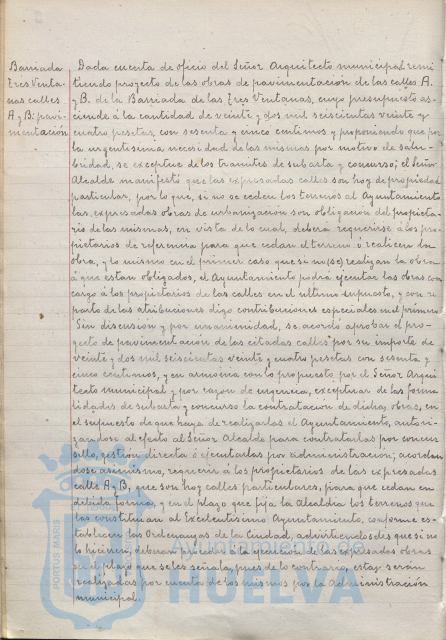 Barriada
Tres Venta-
nas calles
A y B: pavi-
mentación
Dada cuenta de oficio del Señor Arquitecto municipal remi-
tiendo proyecto de las obras de pavimentación de las calles A.
y B. de la Barriada de las Tres Ventanas, cuyo presupuesto as-
ciende á la cantidad de veinte y dos mil seiscientas veinte y
cuatro pesetas, con sesenta y cinco centimos y proponiendo que por
la urgentisima necesidad de las mismas por motivo de salu-
bridad, se exceptue de los tramites de subasta y concurso; el Señor
Alcalde manifestó que las expresadas calles son hoy de propiedad
particular, por lo que, si no se ceden los terrenos al Ayuntamiento
las expresadas obras de urbanización son obligación del propieta-
rio de las mismas, en vista de lo cual, deberá requerirse á los pro-
pietarios de referencia para que cedan el terreno ó realicen la
obra, y lo mismo en el primer caso que si no (se) realizan la obra
á que estan obligados, el Ayuntamiento podrá ejecutar las obras con
cargo á los propietarios de las calles en el ultimo supuesto, y con re
parto de las atribuciones digo contribuciones especiales en el primero
Sin discusion y por unanimidad, se acordó aprobar el pro-
yecto de pavimentación de las citadas calles por su importe de
veinte y dos mil seiscientas veinte y cuatro pesetas con sesenta y
cinco centimos, y en armonia con lo propuesto por el Señor Arqui
tecto municipal y por razon de urgencia, exceptuar de las forma
lidades de subasta y concurso la contratacion de dichas obras, en
el supuesto de que haya de realizarlas el Ayuntamiento, autori-
zandose al efecto al Señor Alcalde para contratarlas por concur
sillo, gestión directa ó ejecutarlas por administracion; acordan
dose asimismo, requerir á los propietarios de las expresadas
calle A y B, que son hoy calles particulares, para que cedan en
debida forma, y en el plazo que fija la Alcaldia los terrenos que
las constituyan al Excelentisimo Ayuntamiento, conforme es-
tablecen las Ordenanzas de la Ciudad, advirtiendoles que si no
lo hicieren, deberan proceder á la ejecución de las expresadas obras
en el plazo que se les señala, pues de lo contrario, estas serán
realizadas por cuenta de los mismos por la Administración
municipal.
PORTUS MARIS
Ayuntamiento de
HUELVA